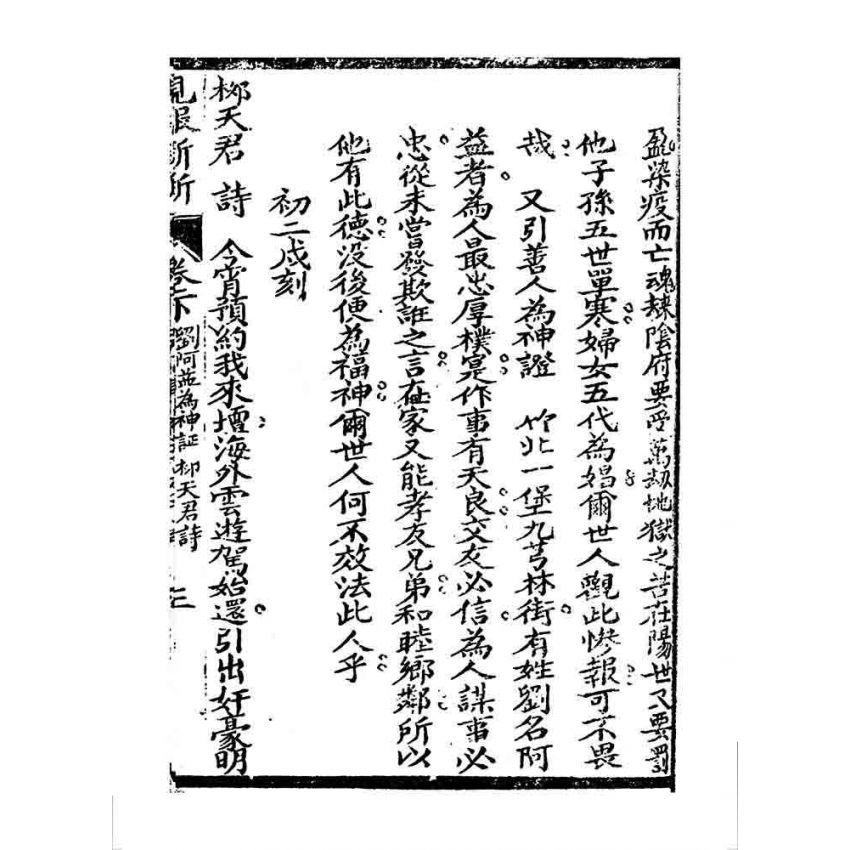 盈染疫而亡魂歸陰府要受萬劫地獄之苦在陽世又要罰
他子孫五世單寒婦女五代為娼爾世人觀此慘報可不畏
哉　又引善人為神證　竹北一堡九芎林街有姓劉名阿
益者為人最忠厚樸寔作事有天良交友必信為人謀事必
忠從未嘗發欺誑之言在家又能孝友兄弟和睦鄉鄰所以
他有此德沒後便為福神爾世人何不效法此人乎
初二戌刻
柳天君　詩　今宵預約我來壇海外雲遊駕始還引出奸豪明
現報新新　卷下　劉阿益為神証　柳天君詩